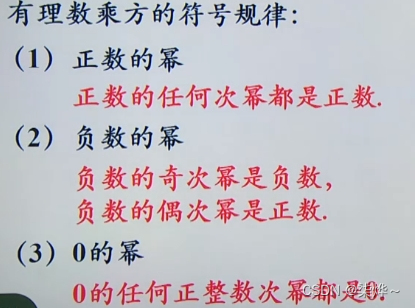 有理数乘方的符号规律:
(1) 正数的幂
正数的任何次幂都是正数.
(2) 负数的幂
负数的奇次幂是负数,
负数的偶次幂是正数.
(3) 0的幂
0的任何正整数次幂都是0.
CSDN @柒烨~